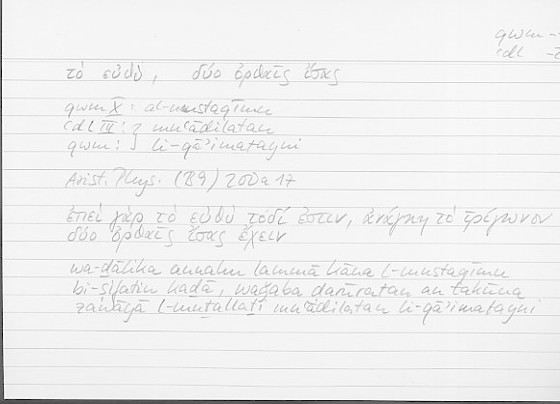 qwm
ʿdl
τὸ εὐθύ, δύο ὀρθαῖς ἴσας
qwm X : al-mustaqīmu
ʿdl III : } muʿādilatan
qwm : } li-qāʾimatayni
Arist. Phys. (B9) 200a17
ἐπεὶ γὰρ τὸ εὐθὺ τοδί ἐστιν, ἀνάγκη τὸ τρίγωνον
δύο ὀρθαῖς ἴσας ἔχειν
wa-ḏālika annahu lammā kāna l-mustaqīmu
bi-ṣifatin kaḏā, waǧaba ḍarūratan an takūna
zawāyā l-muṯallaṯi muʿādilatan li-qāʾimatayni